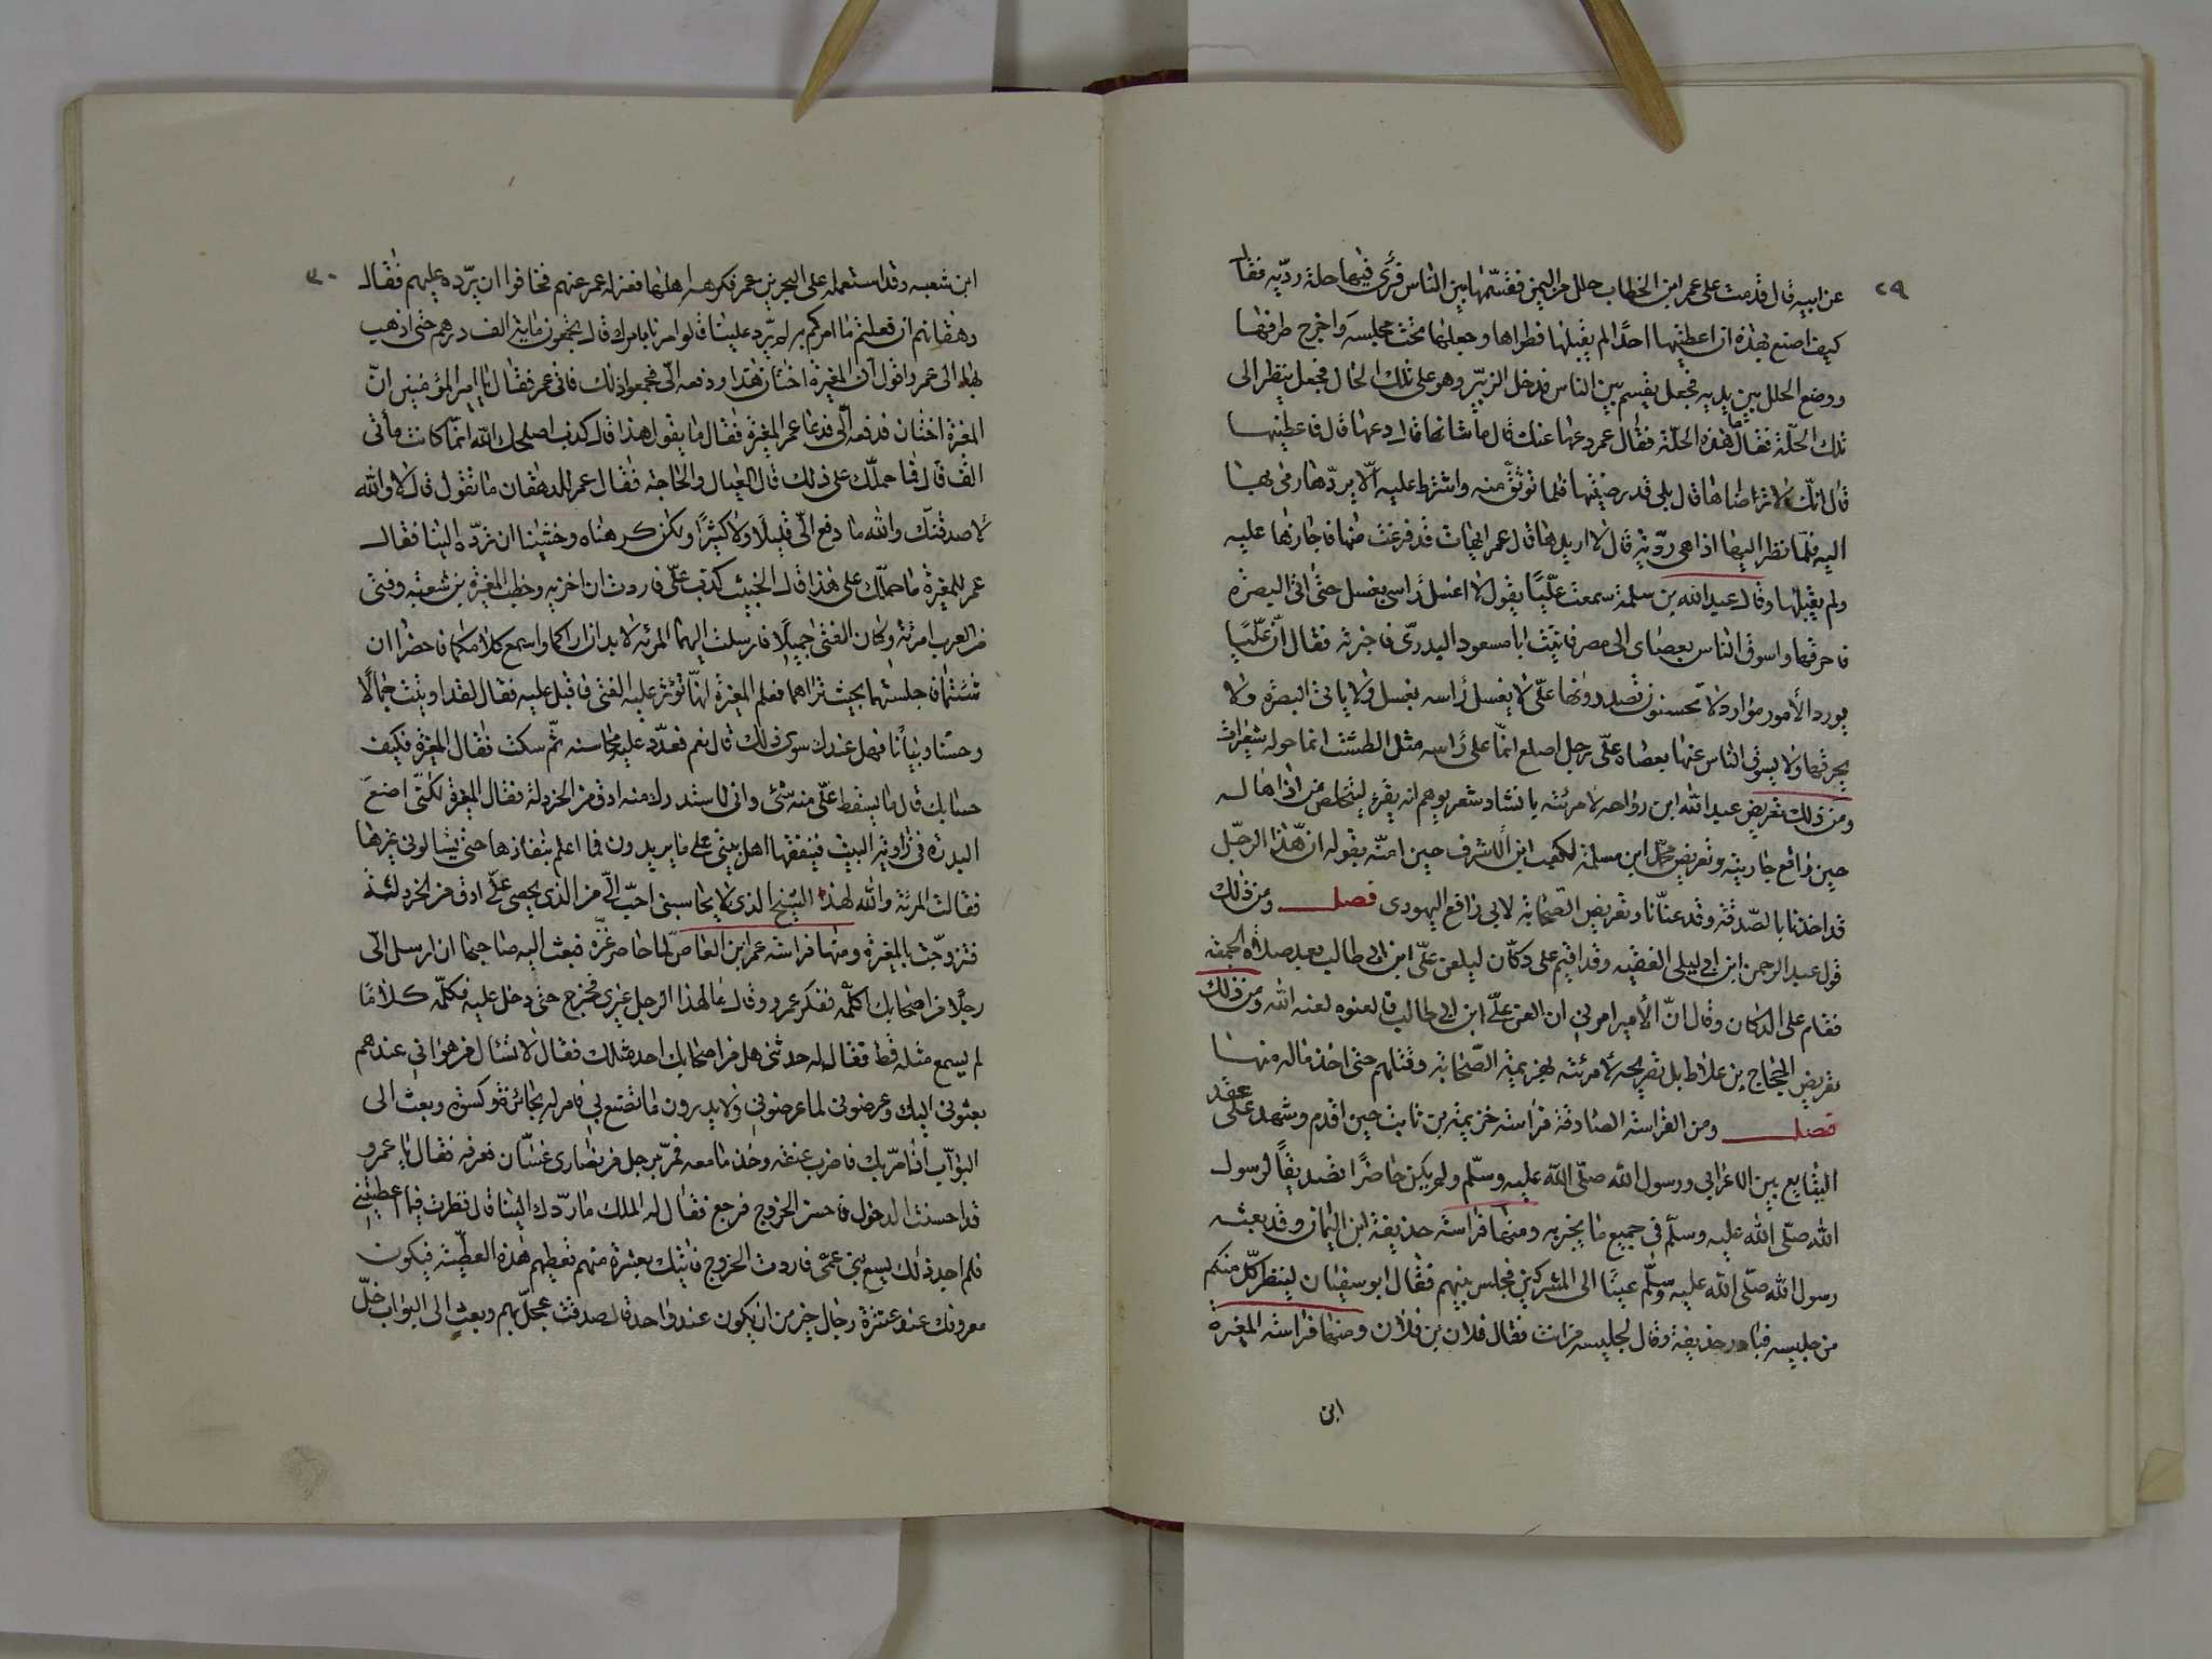 ٢٩
عن ابيه قال قدمت على عمر ابن الخطاب حلل من اليمن فقسّمها بين الناس فرأى فيها حلة رديّه فقال
كيف اصنع بهذه ان اعطيتها احدًا لم يقبلها فطراها وجعلها تحت مجلسه واخرج طرفها
ووضع الحلل بين يديه فجعل يقسم بين الناس فدخل الزبير وهو على تلك الحال فجعل ينظر الى
تلك الحلّة فقال ما هذه الحلّة فقال عمر دعها عنك قال ما شانها قال دعها قال فاعطنيها
قال انّك لا ترضاها قال بلى قد رضيتها فلما توثّق منه واشترط عليه الّا يردّها رمى بها
اليه فلمّا نظر اليها اذا هى رديّة قال لا اريدها قال عمر ايهات قد فرغت منها فاجازها عليه
ولم يقبلها وقال عبد الله بن سلمة سمعت عليًّا يقول لا اغسل رأسى بغسل حتى اتى البصرة
فاحرقها واسوق الناس بعصاى الى مصر فاتيت ابا مسعود البدرىّ فاخبرته فقال انّ عليًّا
يورد الأمور موارد لا تحسنون تصدرونها علىّ لا يغسل رأسه بغسل ولا ياتى البصرة ولا
يحرقها ولا يسوق الناس عنها بعصاه علىّ رجل اصلع انّما على رأسه مثل الطست انما حوله شعيرات
ومن ذلك تعريض عبد الله ابن رواحه لامرئته بانشاد شعر يوهم انه يقرء ليتخلص من اذاها له
حين واقع جاريته وتعريض محمّد ابن مسلمة لكعب ابن الاشرف حين امنه بقوله انّ هذا الرجل
قد اخذنا بالصّدقة وقد عنّانا وتعريض الصّحابة لابى رافع اليهودى فصل ومن ذلك
قول عبد الرحمن ابن ابى ليلى الفقيه وقد اقيم على دكّان ليلعن علىّ ابن ابى طالب بعد صلاة الجمعة
فقام على الدكان وقال انّ الأمير امرنى ان العن علىّ ابن ابى طالب فالعنوه لعنه الله ومن ذلك
تعريض الحجاج بن علاط بل تصريحه لامرئته بهزيمة الصّحابة وقتلهم حتى اخذ ماله منها
فصل ومن الفراسة الصادقة فراسة خزيمة بن ثابت حين اقدم وشهد على عقد
التبايع بين الاعرابى ورسول الله صلّى الله عليه وسلّم ولم يكن حاضرًا تصديقًا لرسول
الله صلّى الله عليه وسلّم فى جميع ما يخبر به ومنها فراسة حذيفة ابن اليمان وقد بعثه
رسول الله صلّى الله عليه وسلّم عينًا الى المشركين فجلس بينهم فقال ابو سفيان لينظر كلّ منكم
من جليسه فبادر حذيفة وقال لجليسه من انت فقال فلان بن فلان ومنها فراسة المغيرة
ابن
٣٠
ابن شعبه وقد استعمله على البحرين عمر فكرهه اهلها فعزله عمر عنهم فخافوا ان يردّه عليهم فقال
دهقانهم ان فعلتم ما امركم به لم يردّ علينا قالوا مرنا بامرك قال تجمعون مايته الف درهم حتى اذهب
بها الى عمر واقول انّ المغيرة اختان هذا ودفعه الىّ فجمعوا ذلك فاتى عمر فقال يا امير المؤمنين انّ
المغيرة اختان فدفعه الىّ فدعا عمر المغيرة فقال ما يقول هذا قال كذب اصلحك الله انّما كانت مأتى
الف قال فما حملك على ذلك قال العيال والحاجة فقال عمر للدهقان ما تقول قال لا والله
لاصدقنك والله ما دفع الىّ قليلًا ولا كثيرًا ولكن كرهناه وخشينا ان تردّه الينا فقال
عمر للمغيرة ما حملك على هذا قال الخبيث كذب علىّ فاردت ان اخزيه وخطب المغيرة بن شعبة وفتى
من العرب امرئة وكان الفتى جميلًا فارسلت اليهما المرئه لا بد ان اراكما واسمع كلامكما فاحضرا ان
شئتما فجلستهما بحيث تراهما فعلم المغيرة انها تؤثر عليه الفتى فاقبل عليه فقال لقد اوتيت جمالًا
وحسنًا وبيانا فهل عندك سوى ذلك قال نعم فعدّد عليه محاسنه ثمّ سكت فقال المغيرة فكيف
حسابك قال ما يسقط علىّ منه شئ وانى لاستدرك منه ادق من الخردلة فقال المغيرة لكنّى اضع
البدرة فى زاوية البيت فينفقها اهل بيتى على ما يريدون فما اعلم بنفادها حتى يسالونى غيرها
فقالت المرئة والله لهذا الشيخ الذى لا يحاسبنى احبّ الىّ من الذى يحصى علىّ ادق من الخردلة
فتزوّجت بالمغيرة ومنها فراسة عمر ابن العاص لما حاصر غزّة فبعث اليه صاحبها ان ارسل الىّ
رجلًا من اصحابك اكلّمه ففكر عمرو وقال ما لهذا الرجل غيرى فخرج حتى دخل عليه فكلّمه كلامًا
لم يسمع مثله قط فقال له حدثنى هل من اصحابك احد مثلك فقال لا تسال من هوانى عندهم
بعثونى اليك وعرضونى لما عرضونى ولا يدرون ما تصنع بى فامر له بجائزة وكسوة وبعث الى
البوّاب اذا مرّ بك فاضرب عنقه وخذ ما معه فمرّ برجل من نصارى غسّان فعرفه فقال يا عمرو
قد احسنت الدخول فاحسن الخروج فرجع فقال له الملك ما ردّك الينا قال نظرت فيما اعطيتنى
فلم اجد ذلك يسع بنى عمّى فاردت الخروج فاتيك بعشرة منهم تعطيهم هذه العطيّة فيكون
معروفك عند عشرة رجال خير من ان يكون عند واحد قال صدقت عجّل بهم وبعث الى البوّاب خلّ